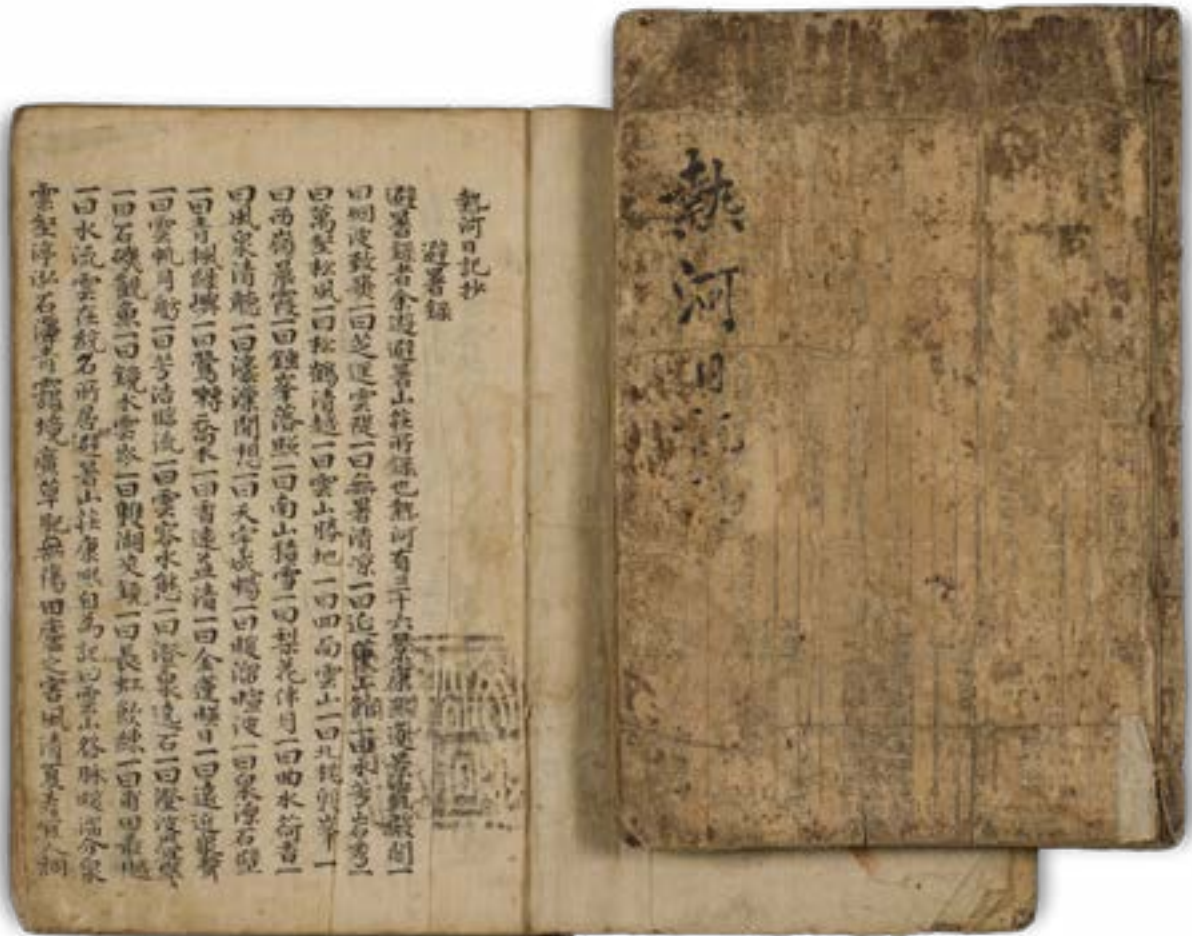 熱河日記
熱河日記抄
避暑錄
避暑錄者余遊避暑山莊所錄也熱河有三十六景康熙殿閣一
曰烟波致爽一曰芝逕雲隄一曰無暑清凉一曰延薰山舘一曰水芳岩秀一
曰萬壑松風一曰松鶴清越一曰雲山勝地一曰四面雲山一曰北枕雙峯一
曰西嶺晨霞一曰錘峯落照一曰南山積雪一曰梨花伴月一曰曲水荷香一
曰風泉清聽一曰濠濮間想一曰天宇咸暢一曰暖溜暄波一曰泉源石壁
一曰青楓綠嶼一曰鶯囀喬木一曰香遠益清一曰金蓮暎日一曰遠近泉聲
一曰雲帆月舫一曰芳渚臨流一曰雲容水態一曰澄泉遶石一曰澄波疊翠
一曰石磯觀魚一曰鏡水雲岑一曰雙湖夾鏡一曰長虹飲練一曰甫田叢樾
一曰水流雲在統名所居避暑山莊康熙自爲記曰雲山谷脉暖溜分泉
雲壑渟泓石潭青靄境廣草肥無傷田廬之害風清夏爽宜人調